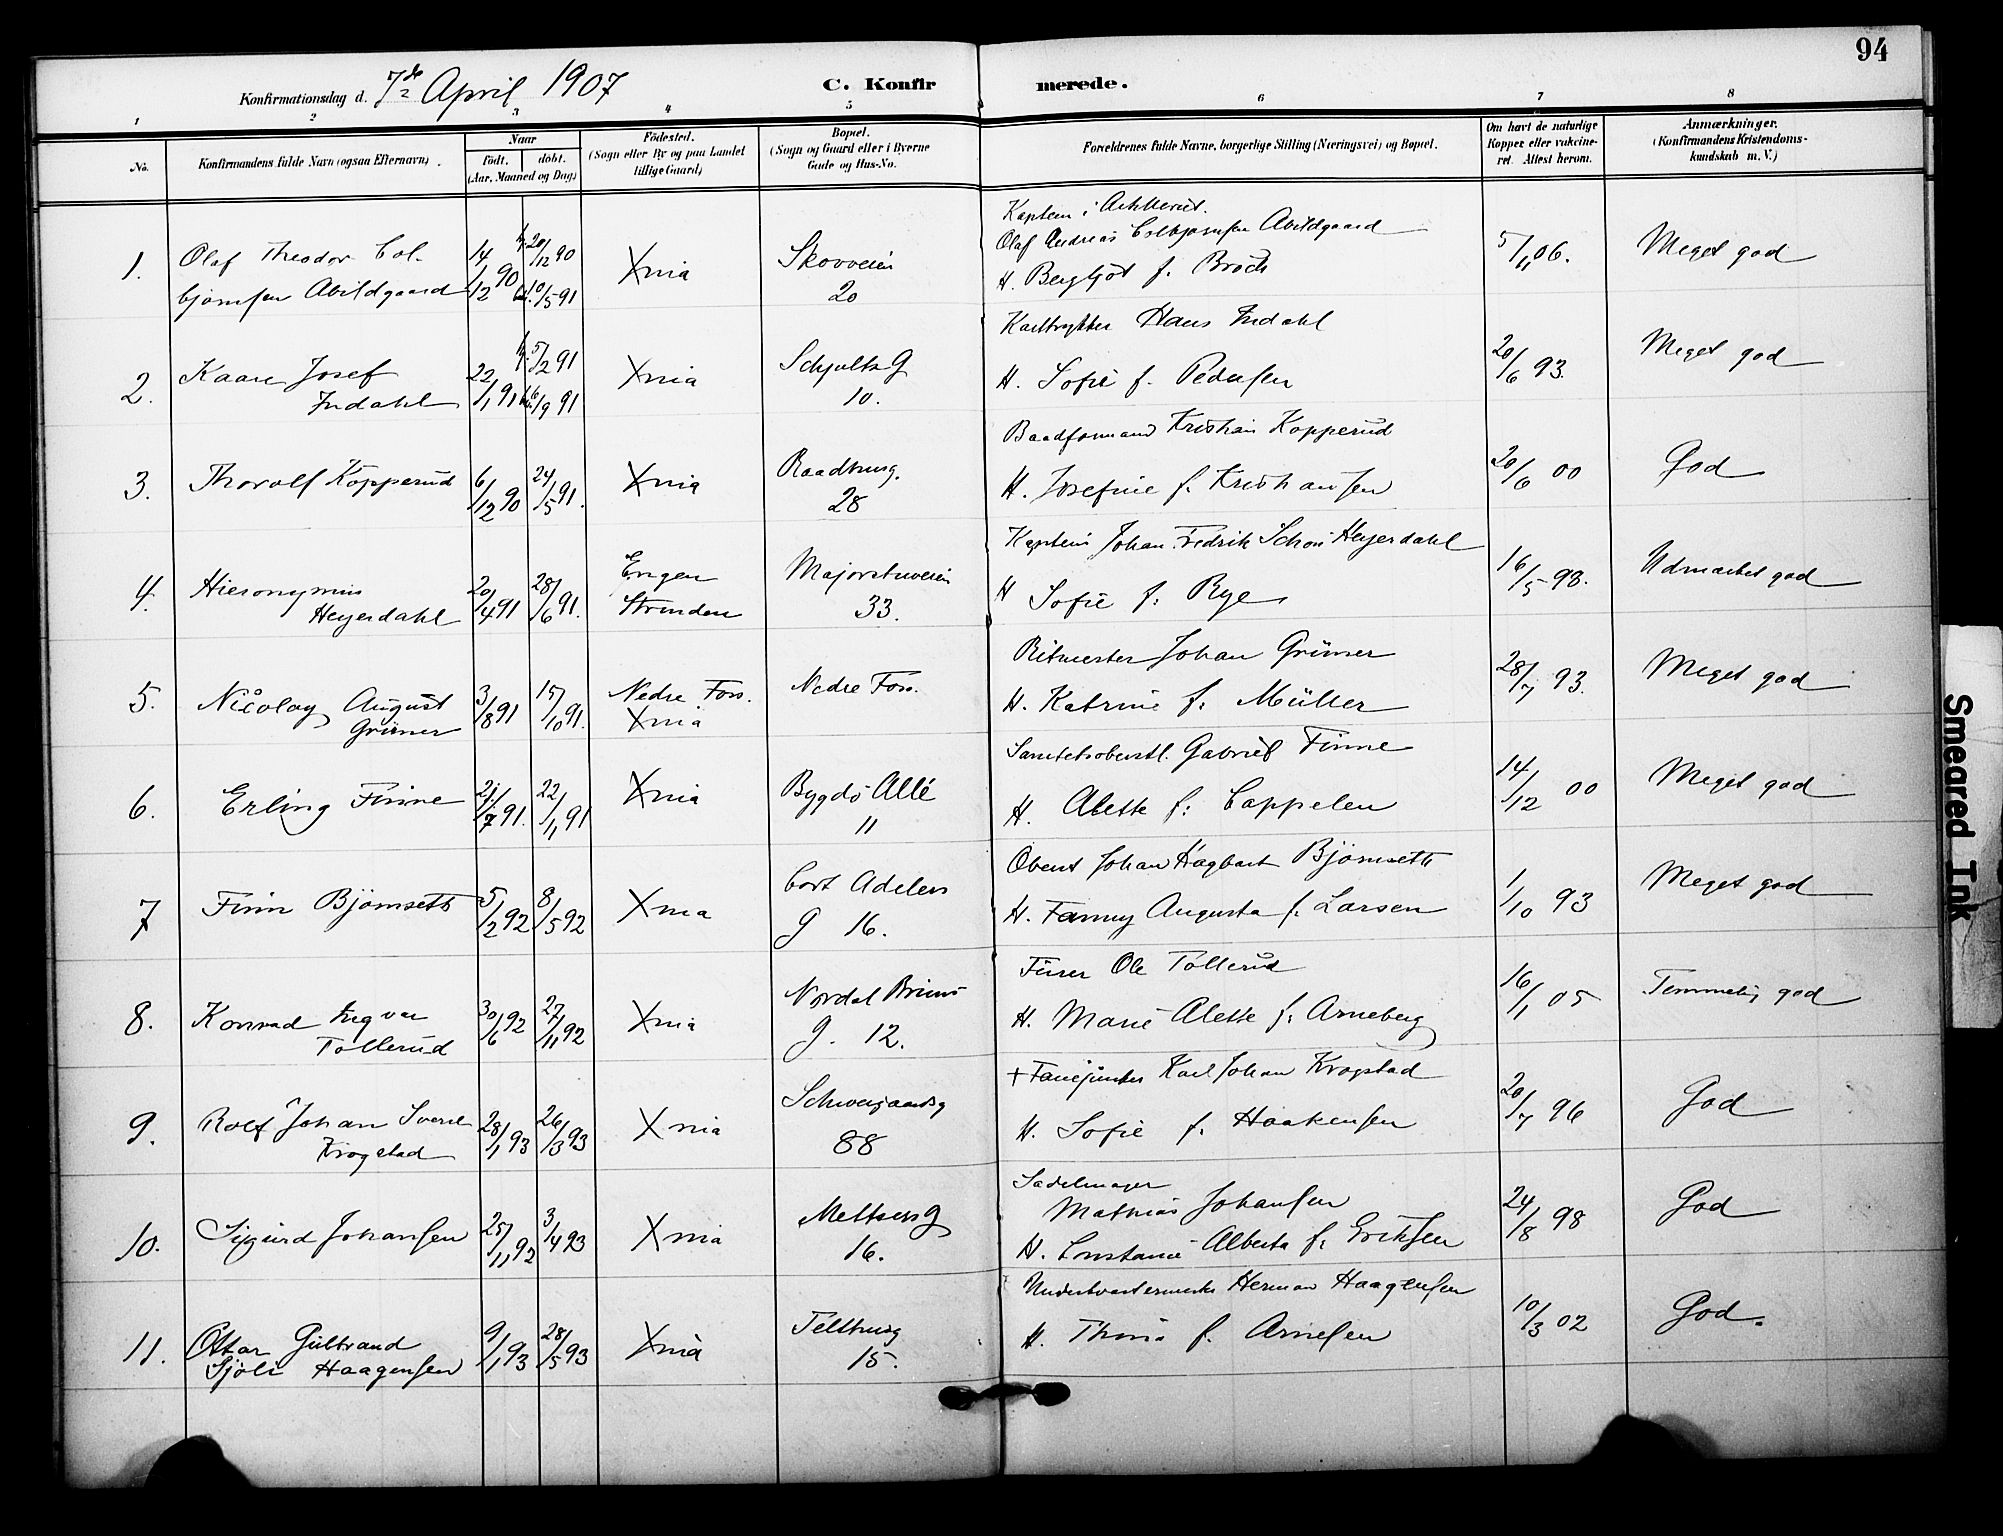 94
Konfirmationsdag d. 7de April 1907
C. Konfirmerede.
1 2 3 4 5 6 7 8
No.
Konfirmandens fulde Navn (ogsaa Efternavn).
Naar
Födt. döbt.
(Aar, Maaned og Dag)
Födested.
(Sogn eller By og paa Landet
tillige Gaard)
Bopæl.
(Sogn og Gaard eller i Byerne
Gade og Hus-No.
Forældrenes fulde Navne, borgerlige Stilling (Næringsvei) og Bopæl.
Om havt de naturlige
Kopper eller vakcine-
ret. Attest herom.
Anmærkninger.
(Konfirmandens Kristendoms-
kundskab m. V.)
1. Olaf Theodor Col-
bjørnsen Abildgaard
14/12 90
20/12 90
10/5 91
Xnia
Skovveien
20
Kaptein i Artilleriet.
Olaf Andreas Colbjørnsen Abildgaard
H. Bergljot f. Broch
5/11 06.
Meget god
2. Kaare Josef
Indahl
22/1 91
5/2 91
6/9 91
Xnia
Schjultz G
10.
Karttrykker Hans Indahl
H. Sofie f. Pedersen
20/6 93.
Meget god
3. Thorolf Kopperud
6/12 90
24/5 91.
Xnia
Raadhusg.
28
Baadformand Kristian Kopperud
H. Josefine f. Kristiansen
20/6 00
God
4. Hieronymus
Heyerdahl
20/4 91
28/6 91.
Engen
Strinden
Majorstuveien
33.
Kaptein Johan Fredrik Schou Heyerdahl
H Sofie f. Rye
16/5 98.
Udmærket god
5. Nicolay August
Grüner
3/8 91
15/10 91.
Nedre Foss.
Xnia
Nedre Foss.
Ritmester Johan Grüner
H. Katrine f. Müller
28/7 93.
Meget god
6. Erling Finne
21/7 91.
22/11 91
Xnia
Bygdö Allé
11
Sanitetsoberstl. Gabriel Finne
H. Alette f. Cappelen
14/12 00
Meget god
7 Finn Björnseth
5/2 92
8/5 92
Xnia
Cort Adelers
g 16.
Oberst Johan Hagbart Björnseth
H. Fanny Augusta f. Larsen
1/10 93
Meget god
8. Konrad Ingvar
Tollerud
30/6 92
27/11 92
Xnia
Nordal Bruns
g. 12.
Furer Ole Tollerud
H. Marie Alette f. Arneberg
16/1 05
Temmelig god
9. Rolf Johan Sverre
Krogstad
28/1 93
26/3 93
Xnia
Schweigaardsg
88
+ Fanejunker Karl Johan Krogstad
H. Sofie f. Haakensen
20/7 96
God
10. Sigurd Johansen
25/11 92
3/4 93
Xnia
Meltzersg
16.
Sadelmager
Mathias Johansen
H. Constance Alberta f. Eriksen
24/8 98
God
11. Ottar Gulbrand
Sjöli Haagensen
9/1 93
28/5 93
Xnia
Telthusg
15.
Herman Haagensen
H. Thora f. Arnesen
10/3 02
God.
Smeared Ink